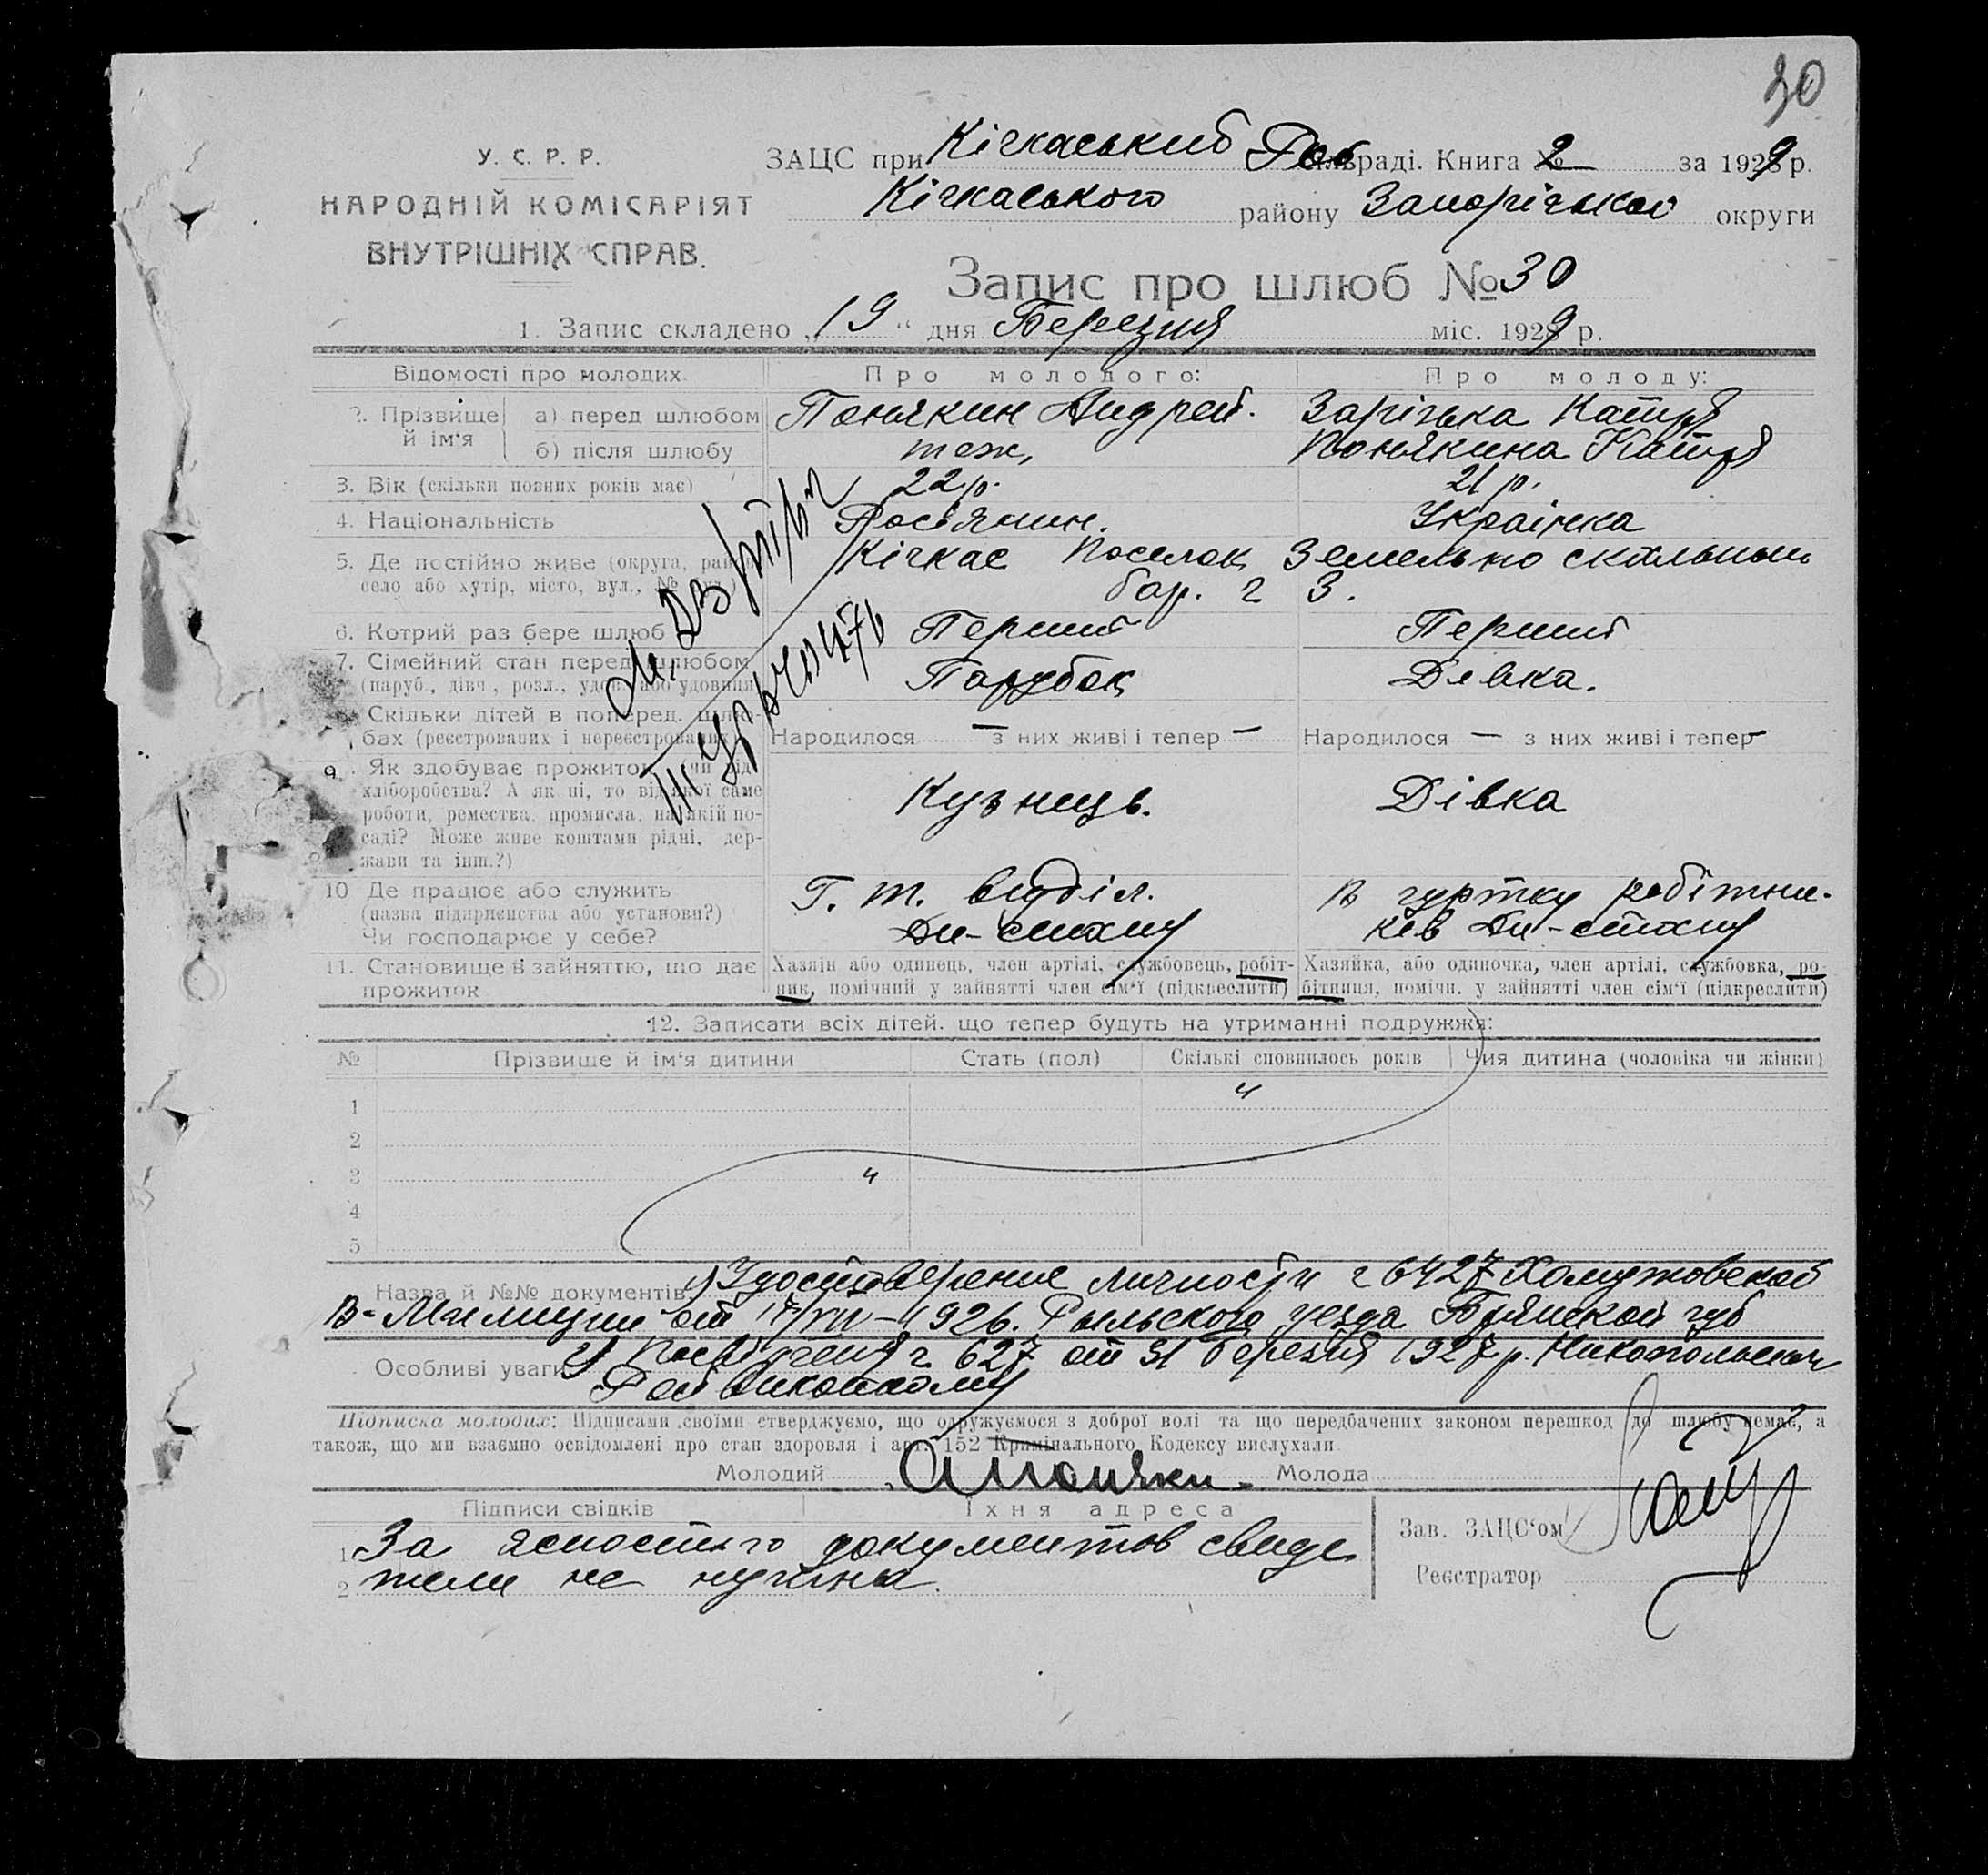 30
У. С. Р. Р.
НАРОДНІЙ КОМІСАРІЯТ
ВНУТРІШНІХ СПРАВ.
ЗАЦС при Кічкаський Роб сільраді. Книга № 2 за 1929 р.
Кічкаського району Запоріжької округи
Запис про шлюб № 30
1. Запис складено „19“ дня Березня міс. 1929 р.
Відомості про молодих
Про молодого:
Про молоду:
2. Прізвище й ім‘я
а) перед шлюбом
Понякин Андрей.
Зарізька Катря
б) після шлюбу
теж,
Понякина Катря
3. Вік (скільки повних років має)
22 р.
21 р.
4. Національність
Росіянин.
Українка
5. Де постійно живе (округа, район
село або хутір, місто, вул., №
Кічкас Поселок Земельно скальный
бар. 2 3.
6. Котрий раз бере шлюб
Перший
Перший
7. Сімейний стан перед шлюбом
(паруб., дівч., розл., удов. або удовиця
Парубок
Дівка.
Скільки дітей в поперед. шлю-
бах (реєстрованих і нереєстрованих)
Народилося — з них живі і тепер —
Народилося — з них живі і тепер —
9. Як здобуває прожиток (чи від
хліборобства? А як ні, то від якої саме
роботи, ремества, промисла, на якій по-
саді? Може живе коштами рідні, дер-
жави та інш.?)
Кузнець.
Дівка
10 Де працює або служить
(назва підприємства або установи?)
Чи господарює у себе?
Г. т. виділ.
Дн-стихлу
В гуртку робітни-
ків Дн-стихлу
11. Становище в зайняттю, що дає
прожиток
Хазяїн або одинець, член артілі, службовець, робіт-
ник, помічний у зайнятті член сім‘ї (підкреслити)
Хазяйка, або одиночка, член артілі, службовка, ро-
бітниця, помічн. у зайнятті член сім‘ї (підкреслити)
12. Записати всіх дітей, що тепер будуть на утриманні подружжя:
№
Прізвище й ім‘я дитини
Стать (пол)
Скількі сповнилось років
Чия дитина (чоловіка чи жінки)
1
2
3
4
5
Назва й №№ документів: 1) Удостоверение личности 2 6427 Хомутовской
В-Милиции от 17/VII-1926. Рыльского уезда Брянской губ
Особливі уваги 2) Посвідчення 2 627 от 31 березня 1927 р. Никопольским
Рай виконкому
Підписка молодих: Підписами своїми стверджуємо, що одружуємося з доброї волі та що передбачених законом перешкод до шлюбу немає, а
також, що ми взаємно освідомлені про стан здоровля і арт. 152 Кримінального Кодексу вислухали
Молодий
Молода
Підписи свідків
Їхня адреса
Зав. ЗАЦС‘ом
Реєстратор
1 За ясностью документов свиде
2 тели не нужны.